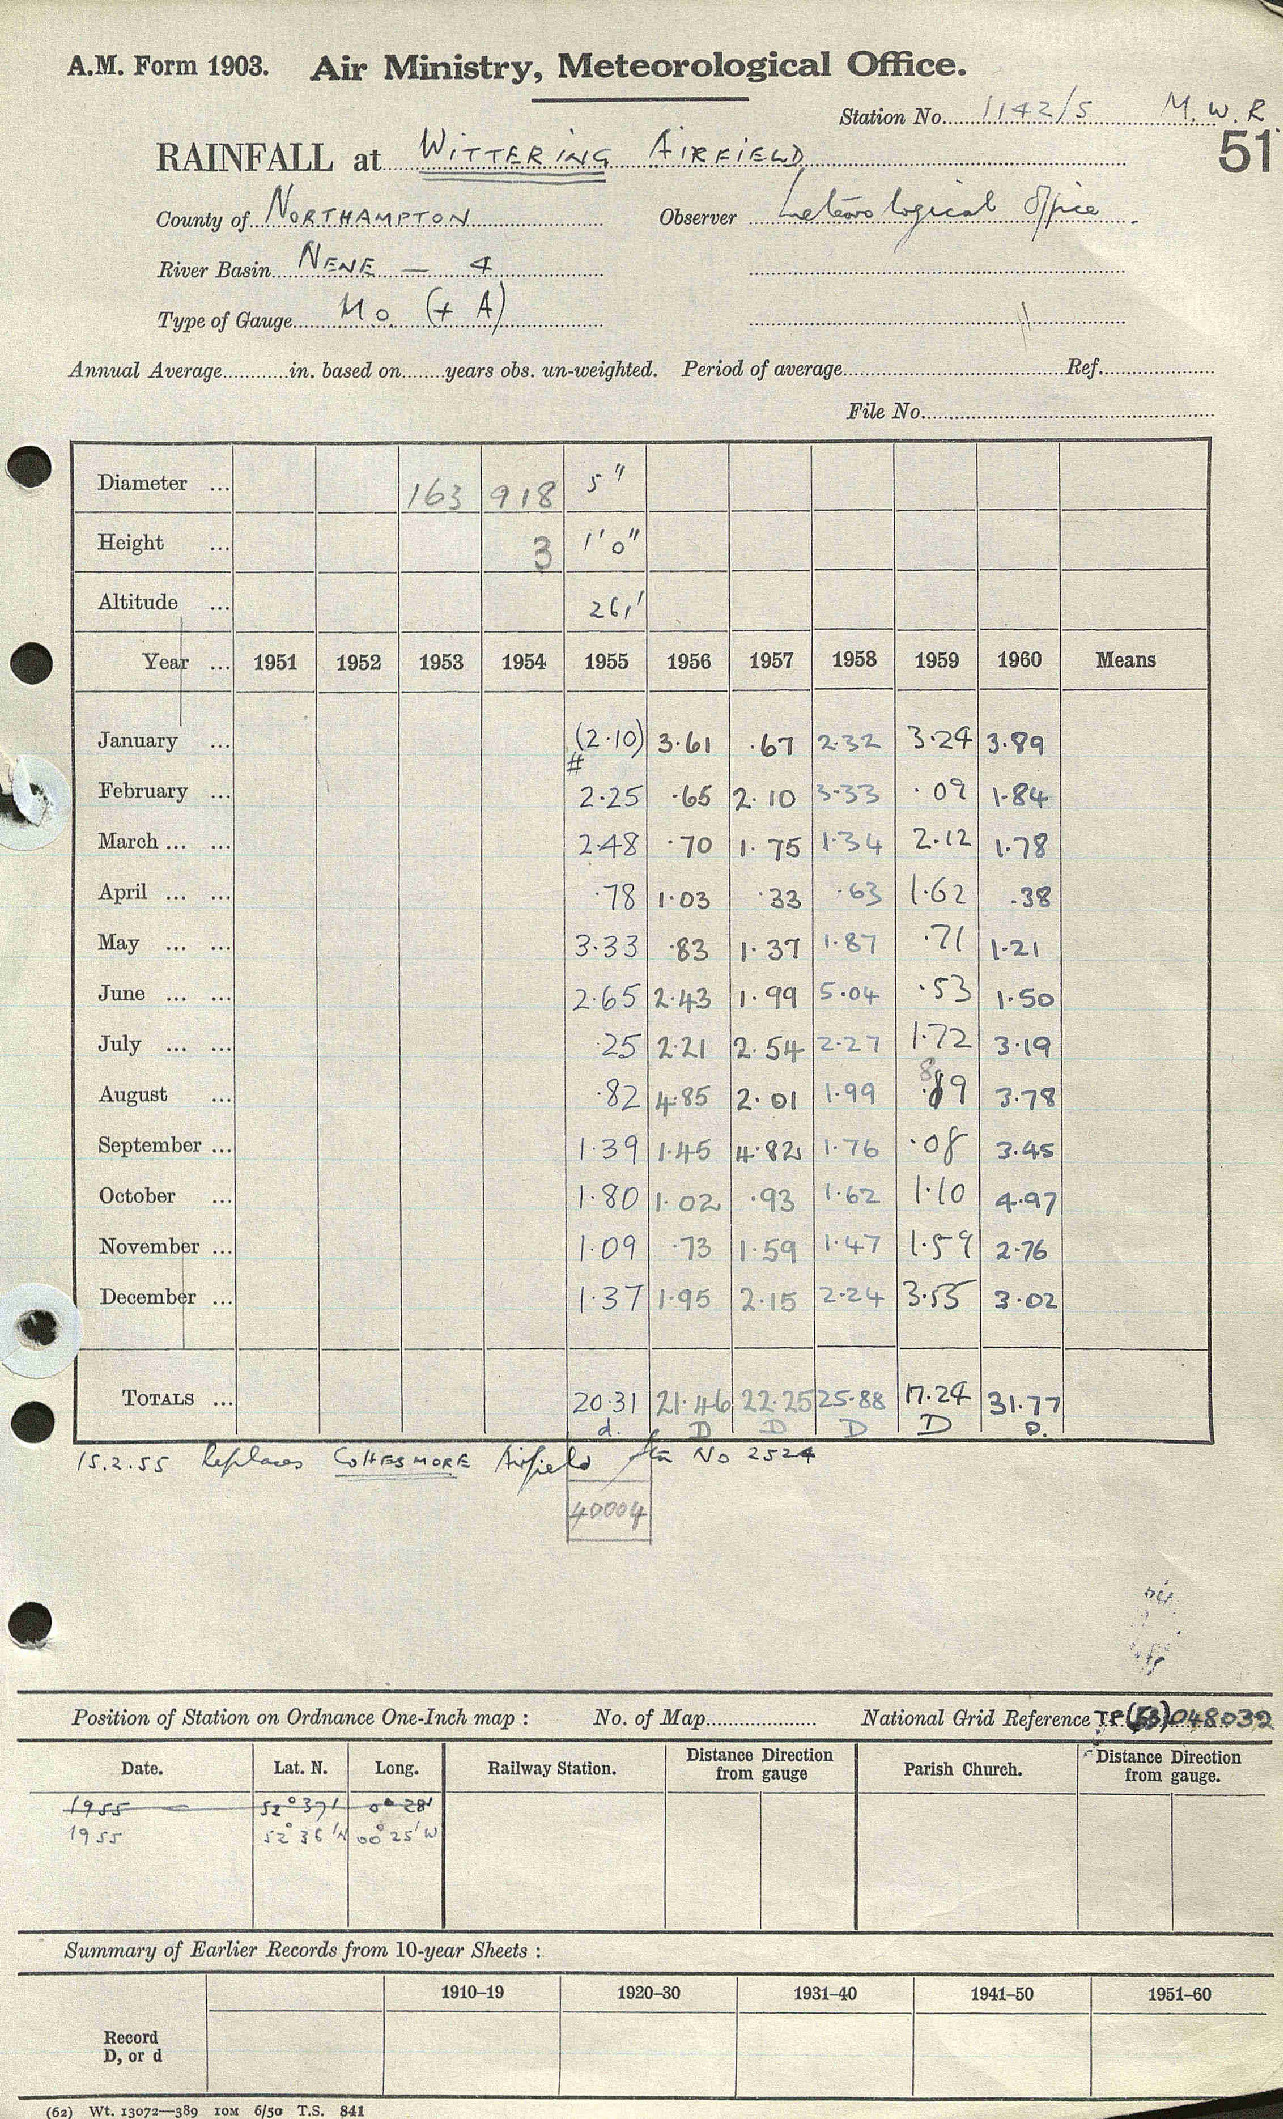 A.M. Form 1903. Air Ministry, Meteorological Office.
Station No. 1142/5 M.W.R.
RAINFALL at WITTERING AIRFIELD 51
County of NORTHAMPTON Observer Meteorological Office
River Basin NENE — 4
Type of Gauge Mo. (+ A)
Annual Average in. based on years obs. un-weighted. Period of average Ref.
File No.
Diameter ... 163 918 5"
Height ... 3 1' 0"
Altitude ... 261'
Year ... 1951 1952 1953 1954 1955 1956 1957 1958 1959 1960 Means
January ... (2.10) 3.61 .67 2.32 3.24 3.89
#
February ... 2.25 .65 2.10 3.33 .09 1.84
March ... ... 2.48 .70 1.75 1.34 2.12 1.78
April ... ... .78 1.03 .33 .63 1.62 .38
May ... ... 3.33 .83 1.37 1.87 .71 1.21
June ... ... 2.65 2.43 1.99 5.04 .53 1.50
July ... ... .25 2.21 2.54 2.27 1.72 3.19
August ... .82 4.85 2.01 1.99 .89 3.78
September ... 1.39 1.45 4.82 1.76 .08 3.45
October ... 1.80 1.02 .93 1.62 1.10 4.97
November ... 1.09 .73 1.59 1.47 1.59 2.76
December ... 1.37 1.95 2.15 2.24 3.55 3.02
TOTALS ... 20.31 21.46 22.25 25.88 17.24 31.77
d. D D D D D.
15.2.55 Replaces COTTESMORE Airfield Stn No 2524
40004
Position of Station on Ordnance One-Inch map : No. of Map National Grid Reference (53) 048032
Date. Lat. N. Long. Railway Station. Distance from gauge Direction Parish Church. Distance from gauge. Direction
1955 52° 37' 0° 28'
1955 52° 36' N 00° 25' W
Summary of Earlier Records from 10-year Sheets :
1910–19 1920–30 1931–40 1941–50 1951–60
Record
D, or d
(62) Wt. 13072—389 10M 6/50 T.S. 841